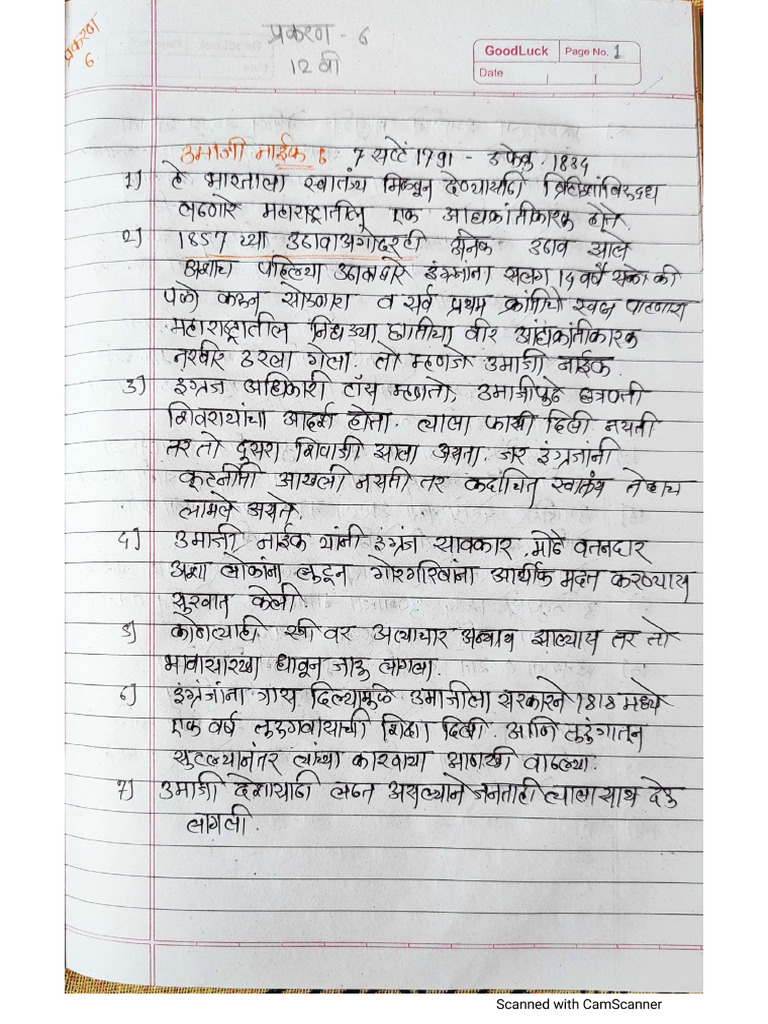 प्रकरण 6.
प्रकरण - 6
12 वी
GoodLuck Page No. 1
Date
उमाजी नाईक 7 सप्टें 1791 - 3 फेब्रु. 1834
1) हे भारताला स्वातंत्र्य मिळवून देण्यासाठी ब्रिटिशांविरुद्ध
लढणारे महाराष्ट्रातील एक आद्यक्रांतीकारक होते.
2) 1857 च्या उठावाअगोदरही अनेक उठाव झाले
अशाच पहिल्या उठावाद्वारे इंग्रजांना सलग 14 वर्षे सळो की
पळो करून सोडणारा व सर्व प्रथम क्रांतीचे स्वप्न पाहणारा
महाराष्ट्रातील निधड्या छातीचा वीर आद्यक्रांतीकारक
नरवीर ठरला गेला. तो म्हणजे उमाजी नाईक.
3) इंग्रज अधिकारी टॉस म्हणतो, उमाजीपुढे छत्रपती
शिवरायांचा आदर्श होता. त्याला फाशी दिली नसती
तर तो दुसरा शिवाजी झाला असता. जर इंग्रजांनी
कूटनीती आखली नसती तर कदाचित स्वातंत्र्य तेव्हाच
लाभले असते.
4) उमाजी नाईक यांनी इंग्रज सावकार, मोठे वतनदार
अशा लोकांना लुटून गोरगरिबांना आर्थिक मदत करण्यास
सुरवात केली.
5) कोणत्याही स्त्री वर अत्याचार अन्याय झाल्यास तर तो
भावासारखा धावून जाऊ लागला.
6) इंग्रजांना त्रास दिल्यामुळे उमाजीला सरकारने 1818 मध्ये
एक वर्ष तुरुंगवासाची शिक्षा दिली. आणि तुरुंगातून
सुटल्यानंतर त्यांच्या कारवाया आणखी वाढल्या.
7) उमाजी देशासाठी लढत असल्याने जनताही त्याला साथ देऊ
लागली.
Scanned with CamScanner